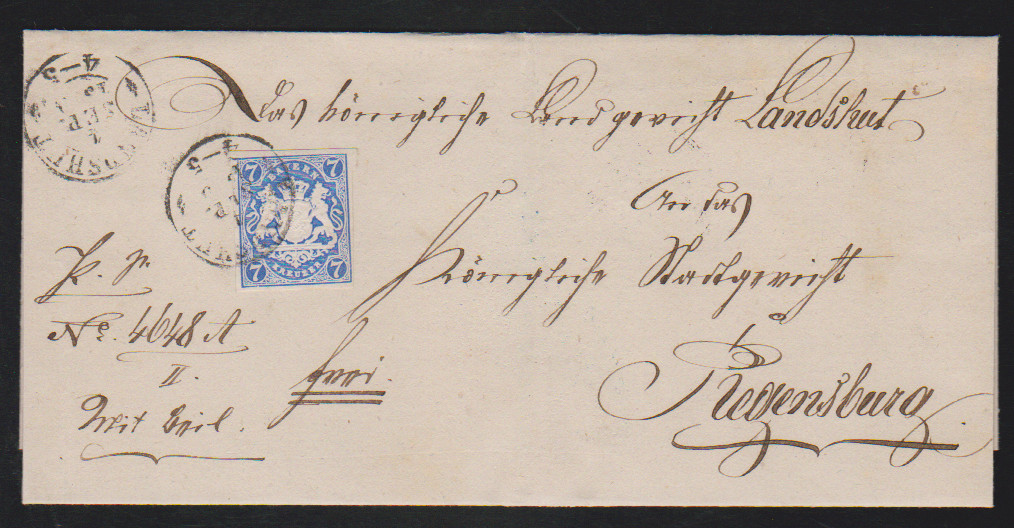 Das königliche Landgericht Landshut
An das
Königliche Stadtgericht
Regensburg
P. P.
No. 4648 A
II.
frei.
Mit Beil.
LANDSHUT
13
SEP.
4-5
LANDSHUT
SEP.
4-5
7 BAYERN 7
7 KREUZER 7